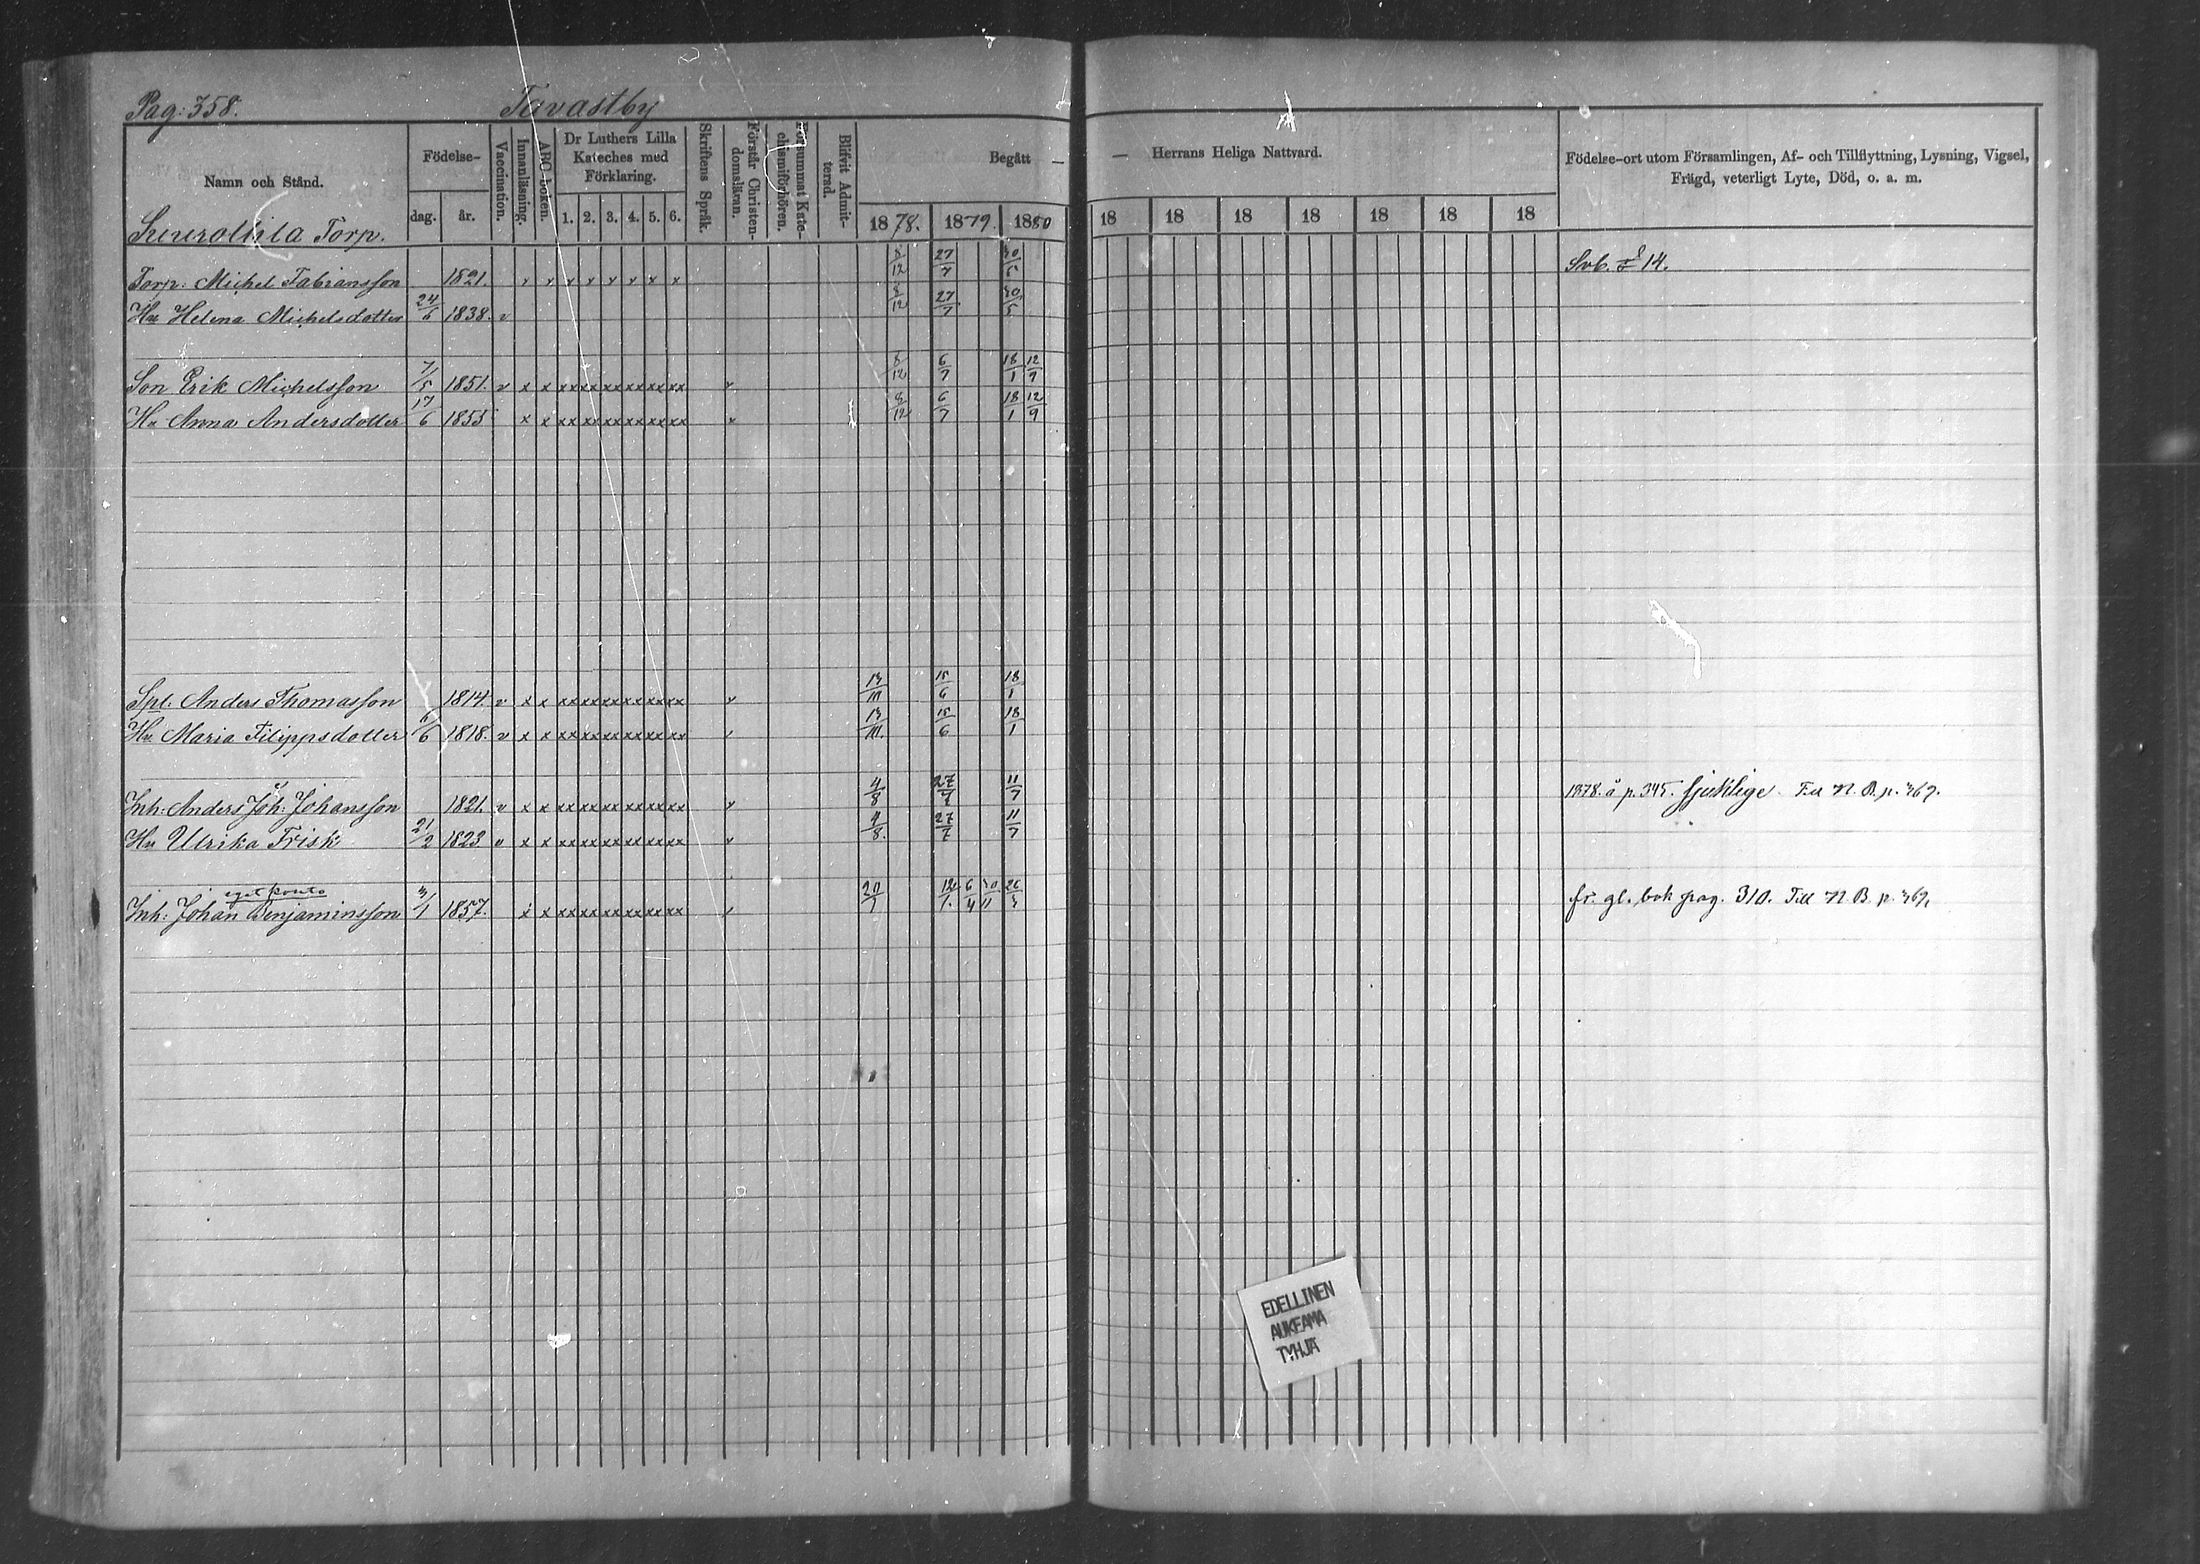 Pag: 358. Tavastby
Namn och Stånd.
Födelse-
dag. år.
Vaccination.
Innanläsning.
ABC-boken.
Dr Luthers Lilla
Kateches med
Förklaring.
1. 2. 3. 4. 5. 6.
Skriftens Språk.
Förstår Christen-
domsläran.
Försummat Kate-
chismiförhören.
Blifvit Admit-
terad.
Begått —
1878. 1879. 1880
— Herrans Heliga Nattvard.
18 18 18 18 18 18 18
Födelse-ort utom Församlingen, Af- och Tillflyttning, Lysning, Vigsel,
Frägd, veterligt Lyte, Död, o. a. m.
Torp.
Torp: Michel Fabiansson 1821. x x x x x x x x 8/12 27/7 30/5 14.
Hu Helena Michelsdotter 24/6 1838. v 8/12 27/7 30/5
Son Erik Michelsson 7/5 1851. v x x xx xx xx xx xx xx v 8/12 6/7 18/1 12/9
Hu Anna Andersdotter 17/6 1855 x x xx xx xx xx xx xx v 8/12 6/7 18/1 12/9
Spl. Anders Thomasson 1814. v x x xx xx xx xx xx xx v 13/10 15/6 18/1
Hu Maria Filippsdotter 6/6 1818. v x x xx xx xx xx xx xx 13/10. 15/6 18/1
Inh: Anders Joh: Johansson 1821. v x x xx xx xx xx xx xx v 4/8 27/7 11/7 1878. å p. 345. sjuklige. Till N. B. p. 369.
Hu Ulrika Frisk 21/2 1823 v x x xx xx xx xx xx xx v 4/8. 27/7 11/7
eget konto
Inh: Johan Benjaminsson 3/1 1857. x x xx xx xx xx xx xx 20/7 12/1. 6/4 30/11 26/3 fr. gl. bok pag. 310. Till N. B. p. 369.
EDELLINEN
AUKEAMA
TYHJÄ